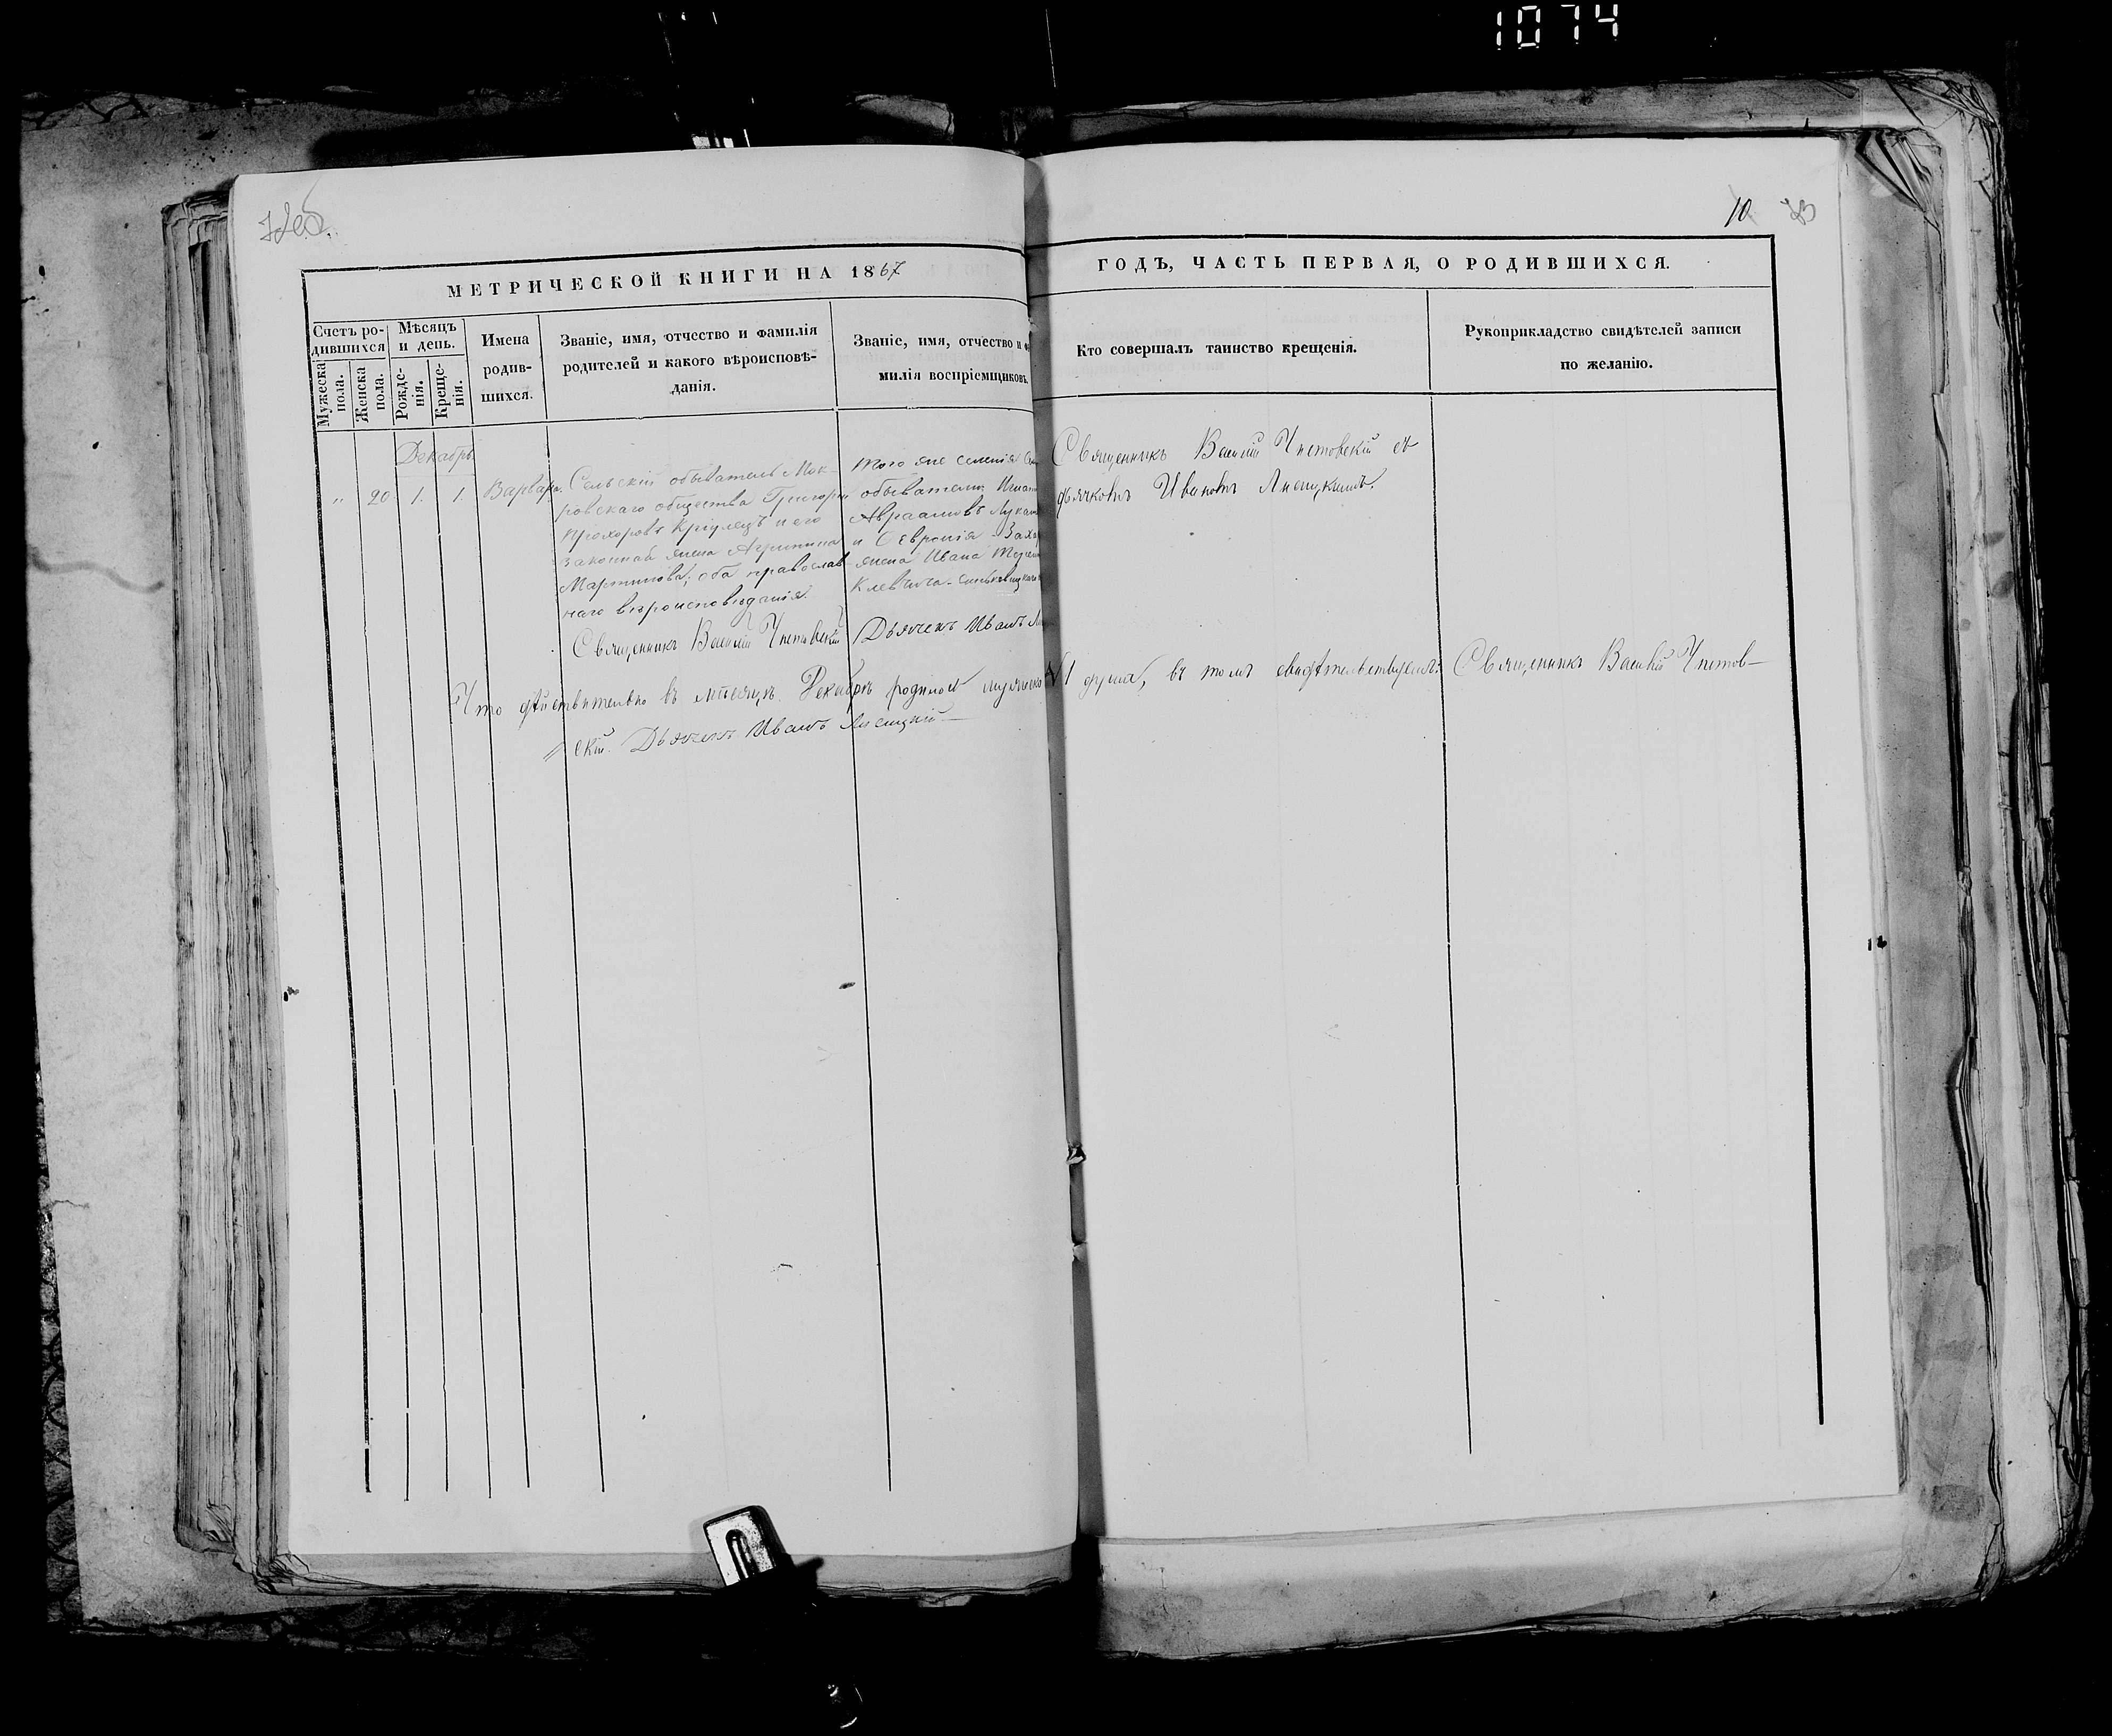 1074
10
МЕТРИЧЕСКОЙ КНИГИ НА 1867
ГОДЪ, ЧАСТЬ ПЕРВАЯ, О РОДИВШИХСЯ.
Счетъ ро-
дившихся
Мужеска
пола.
Женска
пола.
Мѣсяцъ
и день.
Рожде-
нія.
Креще-
нія.
Имена
родив-
шихся.
Званіе, имя, отчество и фамилія
родителей и какого вѣроисповѣ-
данія.
Званіе, имя, отчество и
милія воспріемщиковъ.
Кто совершалъ таинство крещенія.
Рукоприкладство свидѣтелей записи
по желанію.
Декабрь
" 20 1. 1. Варвара.
Сельскій обыватель Мок-
ровскаго общества Григорій
Прохоровъ и его
законная жена Агрипина
Мартинова; оба православ
наго вѣроисповѣданія.
Священникъ Василій
того же селенія
обыватель
Авраамовъ
и Севронія
жена Ивана
Дьячекъ Иванъ
Священникъ Василій съ
дьячкомъ Иваномъ
Что дѣйствительно въ мѣсяцѣ Декабрѣ родилось
1 душа, въ томъ свидѣтельствуемъ: Священникъ Василій
скій. Дьячекъ Иванъ Лисицкій